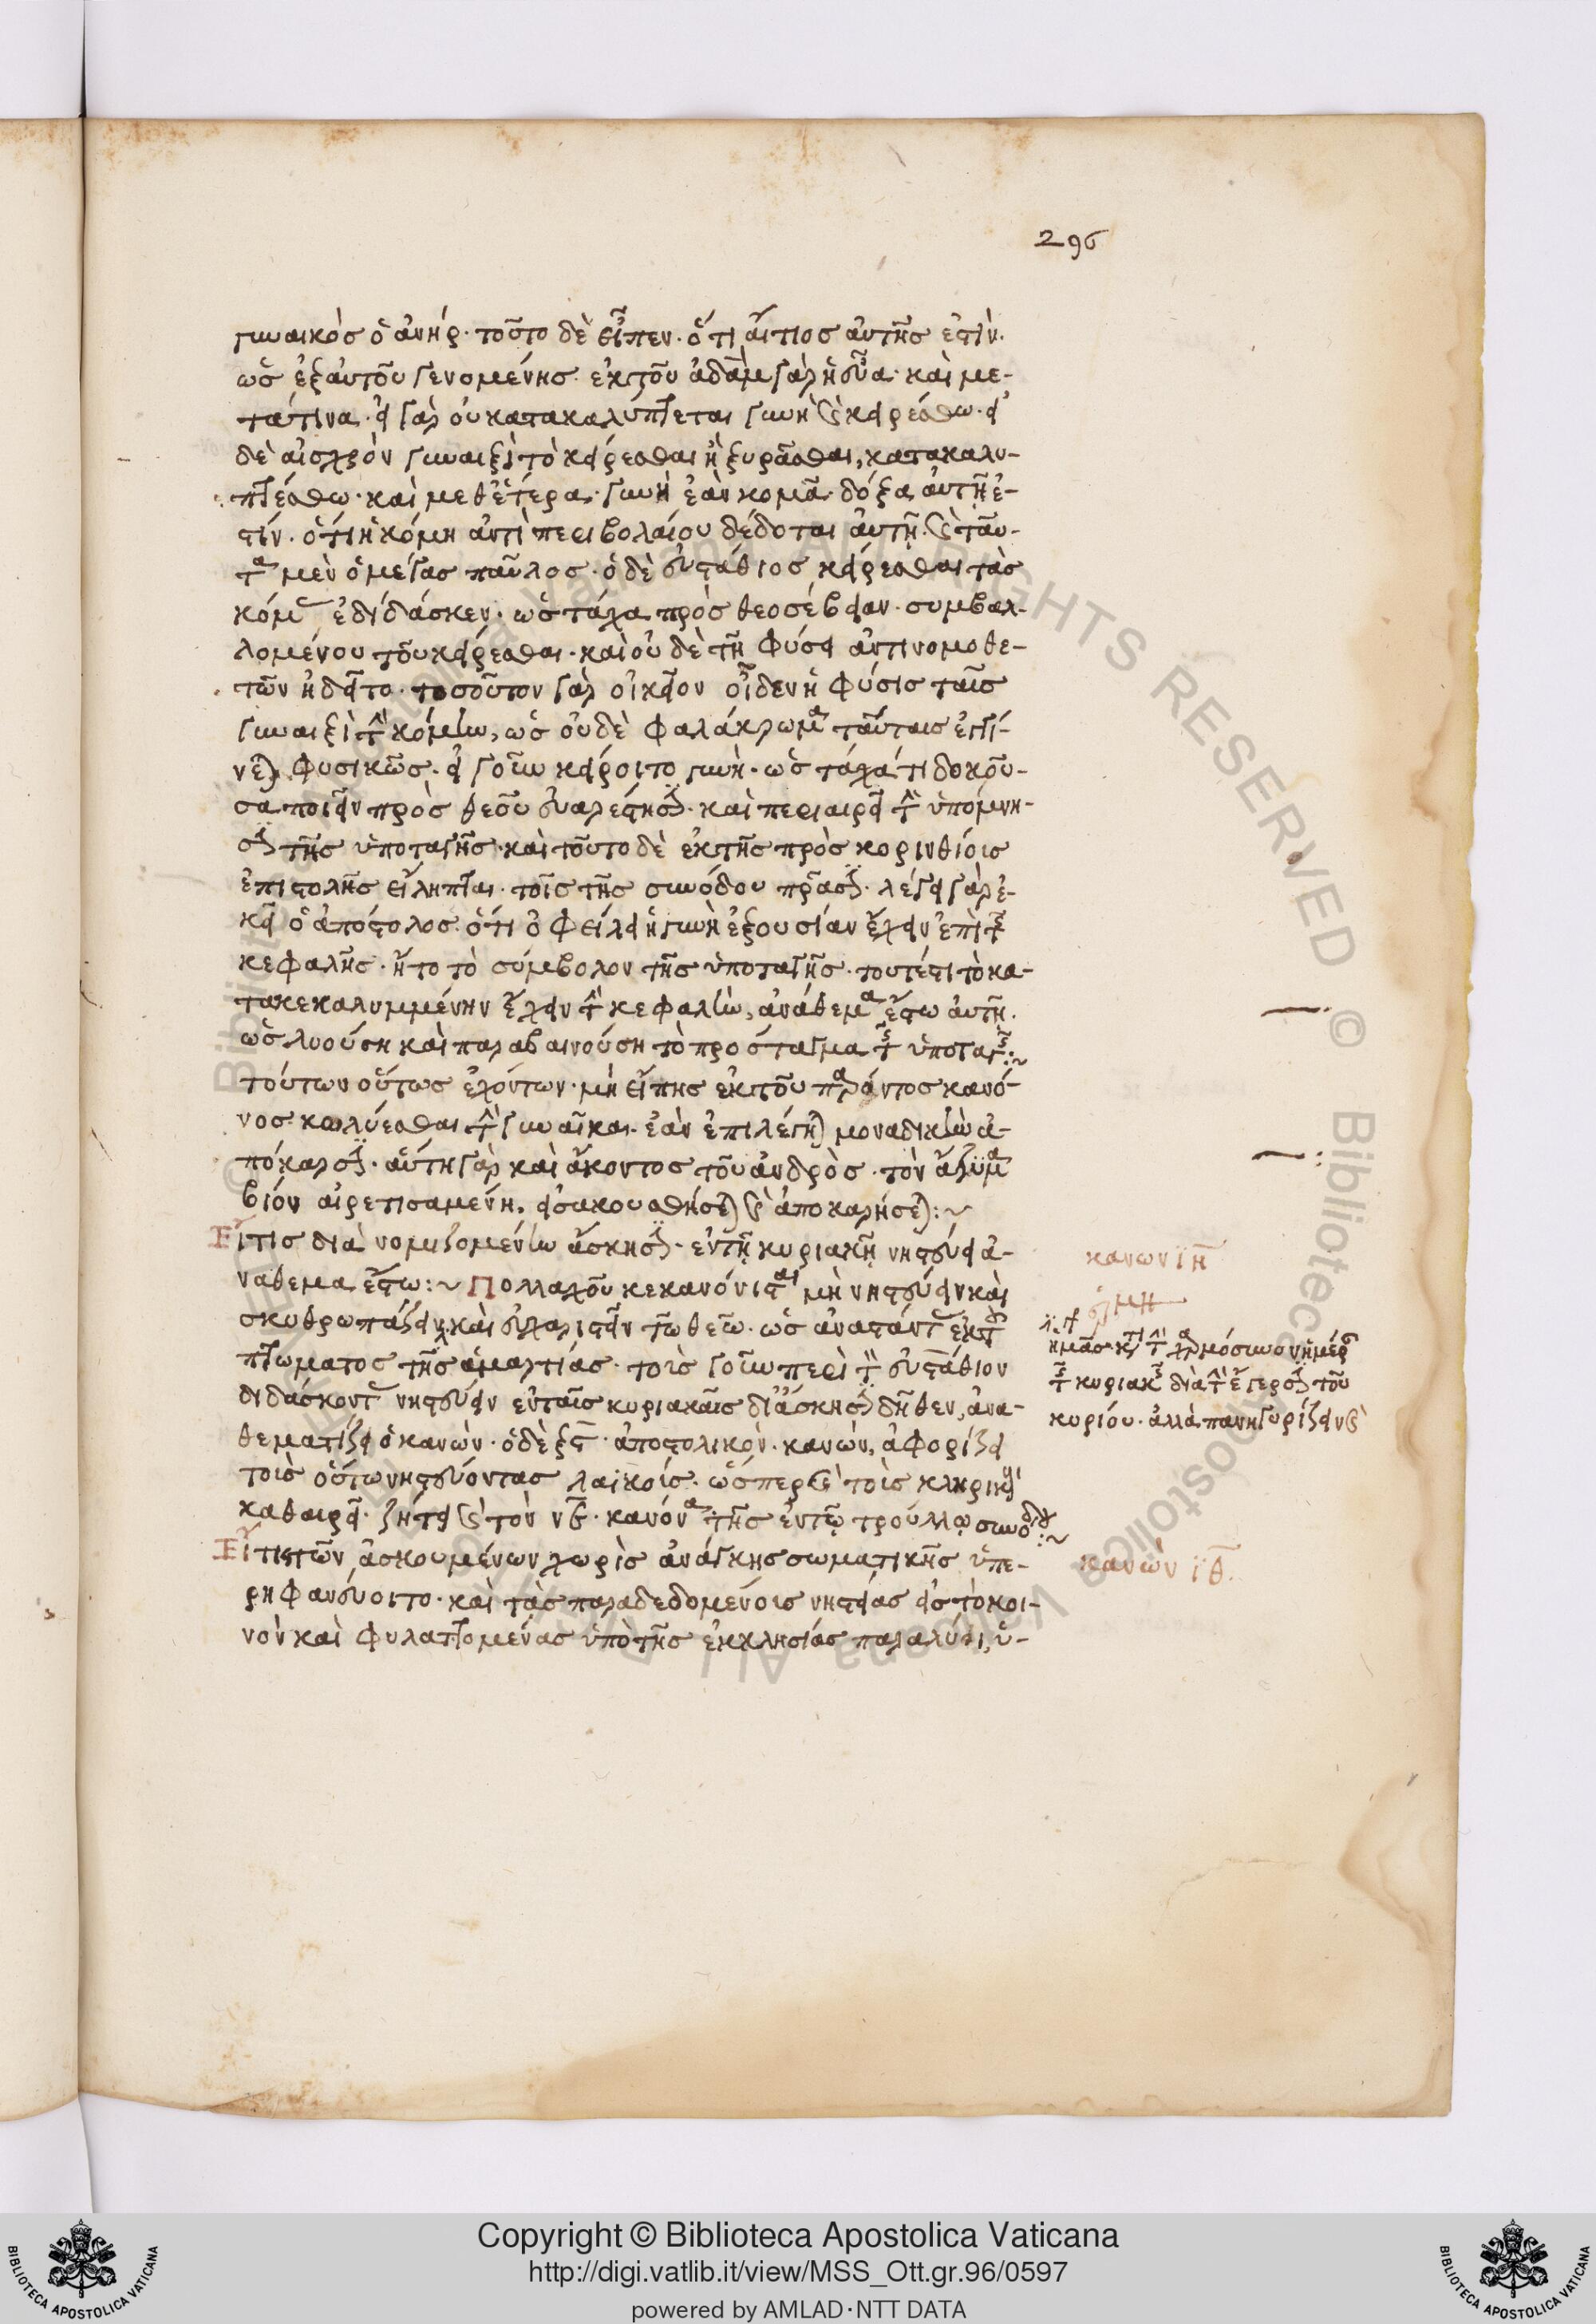 296
γυναικὸς ὁ ἀνήρ· τοῦτο δὲ εἶπεν· ὅτι αἴτιος αὐτῆς ἐστὶν·
ὡς ἐξ αὐτοῦ γενομένης· ἐκ τοῦ ἀδὰμ γὰρ ἡ εὔα· καὶ με-
τά τινα· εἰ γὰρ οὐ κατακαλύπτεται γυνὴ καὶ κειρέσθω· εἰ
δὲ αἰσχρὸν γυναιξὶ τὸ κείρεσθαι ἢ ξυρᾶσθαι, κατακαλυ-
πτέσθω· καὶ μεθ' ἕτερα· γυνὴ ἐὰν κομᾶ· δόξα αὐτῇ ἐ-
στίν· ὅτι ἡ κόμη ἀντὶ περιβολαίου δέδοται αὐτῇ· καὶ ταῦ-
τα μὲν ὁ μέγας παῦλος· ὁ δὲ εὐστάθιος κείρεσθαι τὰς
κόμας ἐδίδασκεν· ὡς τάχα πρὸς θεοσέβειαν· συμβαλ-
λομένου τοῦ κείρεσθαι· καὶ οὐδὲ τῇ φύσει ἀντινομοθε-
τῶν ᾐδεῖτο· τοσοῦτον γὰρ οἰκεῖον οἶδεν ἡ φύσις ταῖς
γυναιξὶ τὴν κόμην, ὡς οὐδὲ φαλάκρωμα ταύταις ἐπιγί-
νεται φυσικῶς· εἰ γοῦν κείροιτο γυνὴ· ὡς τάχα τι δοκοῦ-
σα ποιεῖν πρὸς θεοῦ εὐαρέστησιν· καὶ περιαιρεῖ τὴν ὑπόμνη-
σιν τῆς ὑποταγῆς· καὶ τοῦτο δὲ ἐκ τῆς πρὸς κορινθίοις
ἐπιστολῆς εἴληπται· τοῖς τῆς συνόδου πράσιν· λέγει γὰρ ἐ-
κεῖ ὁ ἀπόστολος· ὅτι ὀφείλει ἡ γυνὴ ἐξουσίαν ἔχειν ἐπὶ τῆς
κεφαλῆς· ἤτοι τὸ σύμβολον τῆς ὑποταγῆς· τουτέστι τὸ κα-
τακεκαλυμμένην ἔχειν τὴν κεφαλὴν, ἀνάθεμα ἔστω αὐτῇ·
ὡς λυούσῃ καὶ παραβαινούσῃ τὸ πρόσταγμα τῆς ὑποταγῆς:~
τούτων οὕτως ἐχόντων· μὴ εἴπῃς ἐκ τοῦ παρόντος κανό-
νος κωλύεσθαι τὴν γυναῖκα· ἐὰν ἐπιλέγηται μοναδικὴν ἀ-
πόκαρσιν· αὕτη γὰρ καὶ ἄκοντος τοῦ ἀνδρὸς· τὸν ἄζυμα
βίον αἱρετισαμένη, εἰσακουσθήσεται καὶ ἀποκαρήσεται:~
Εἴ τις διὰ νομιζομένην ἄσκησιν· ἐν τῇ κυριακῇ νηστεύει ἀ-
νάθεμα ἔστω:~ Πολλαχοῦ κεκανόνισται μὴ νηστεύειν καὶ
σκυθρωπάζειν· καὶ εὐχαριστεῖν τῷ θεῷ· ὡς ἀναστάντας ἐκ τοῦ
πτώματος τῆς ἁμαρτίας· τοὺς γοῦν περὶ τὸν εὐστάθιον
διδάσκοντας νηστεύειν ἐν ταῖς κυριακαῖς δι' ἄσκησιν δῆθεν, ἀνα-
θεματίζει ὁ κανών· ὁ δὲ ξδ· ἀποστολικὸν· κανών, ἀφορίζει
τοὺς οὕτω νηστεύοντας λαϊκοὺς· ὥσπερ καὶ τοὺς κληρικοὺς
καθαιρεῖ· ζήτει καὶ τὸν νϛ· κανόνα τῆς ἐν τῷ τρούλλῳ συνόδου:~
Εἴ τις τῶν ἀσκουμένων χωρὶς ἀνάγκης σωματικῆς ὑπε-
ρηφανεύοιτο· καὶ τὰς παραδεδομένοις νηστείας εἰς τὸ κοι-
νὸν καὶ φυλαττομένας ὑπὸ τῆς ἐκκλησίας παραλύει, ὑ-
κανων ϊη
ἡμᾶς κατὰ τὴν χαρμόσυνον ἡμέραν
τῆς κυριακῆς διὰ τὴν ἔγερσιν τοῦ
κυρίου· ἀλλὰ πανηγυρίζειν καὶ
κανὼν ϊθ.
Copyright © Biblioteca Apostolica Vaticana
http://digi.vatlib.it/view/MSS_Ott.gr.96/0597
powered by AMLAD·NTT DATA
BIBLIOTECA APOSTOLICA VATICANA
BIBLIOTECA APOSTOLICA VATICANA